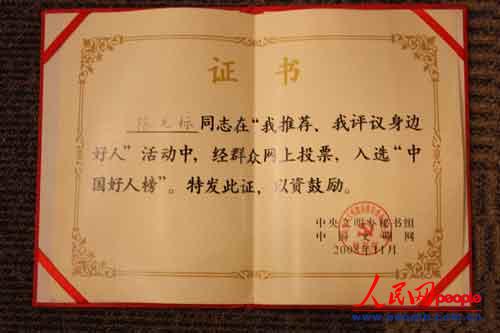 证书
陈光标同志在“我推荐、我评议身边
好人”活动中，经群众网上投票，入选“中
国好人榜”。特发此证，以资鼓励。
中央文明办秘书组
中国文明网
2008年11月
人民网people
www.people.com.cn